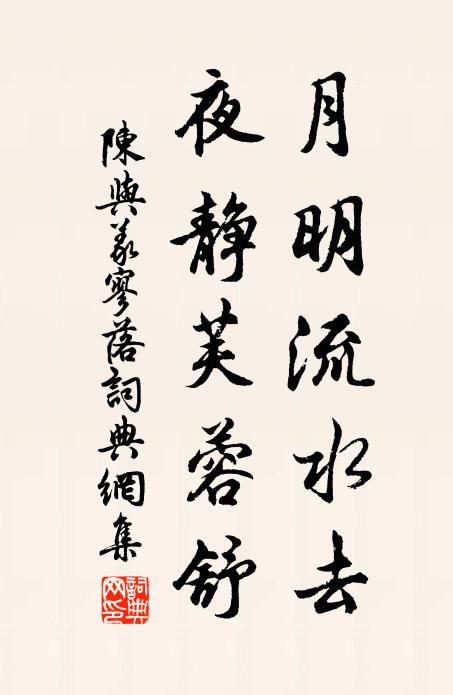 月明流水去
夜静芙蓉舒
陳與義寥落詞典網集
詞典
网印